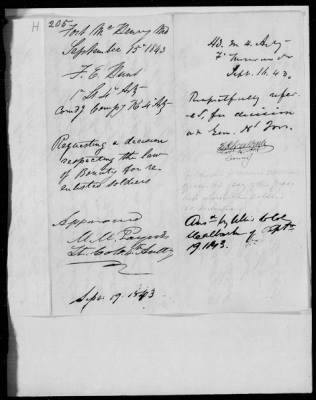 H
205
Fort McHenry Md
September 15th 1843
F. E. Hunt
1st Lt 4th Arty
Comdg Compy H 4th Arty
Requesting a decision
respecting the law
of Bounty for re-
enlisted soldiers
Approved
M. M. Payne
Lt. Col. 4th Artty
Sep. 19. 1843
Hd. Qrs 4 Arty
Ft Monroe
Sept. 16. 43.
Respectfully refer-
ed, for decision
at Gen. Hd Qrs.
Comg
Ansd by
of Septr
19 1843.